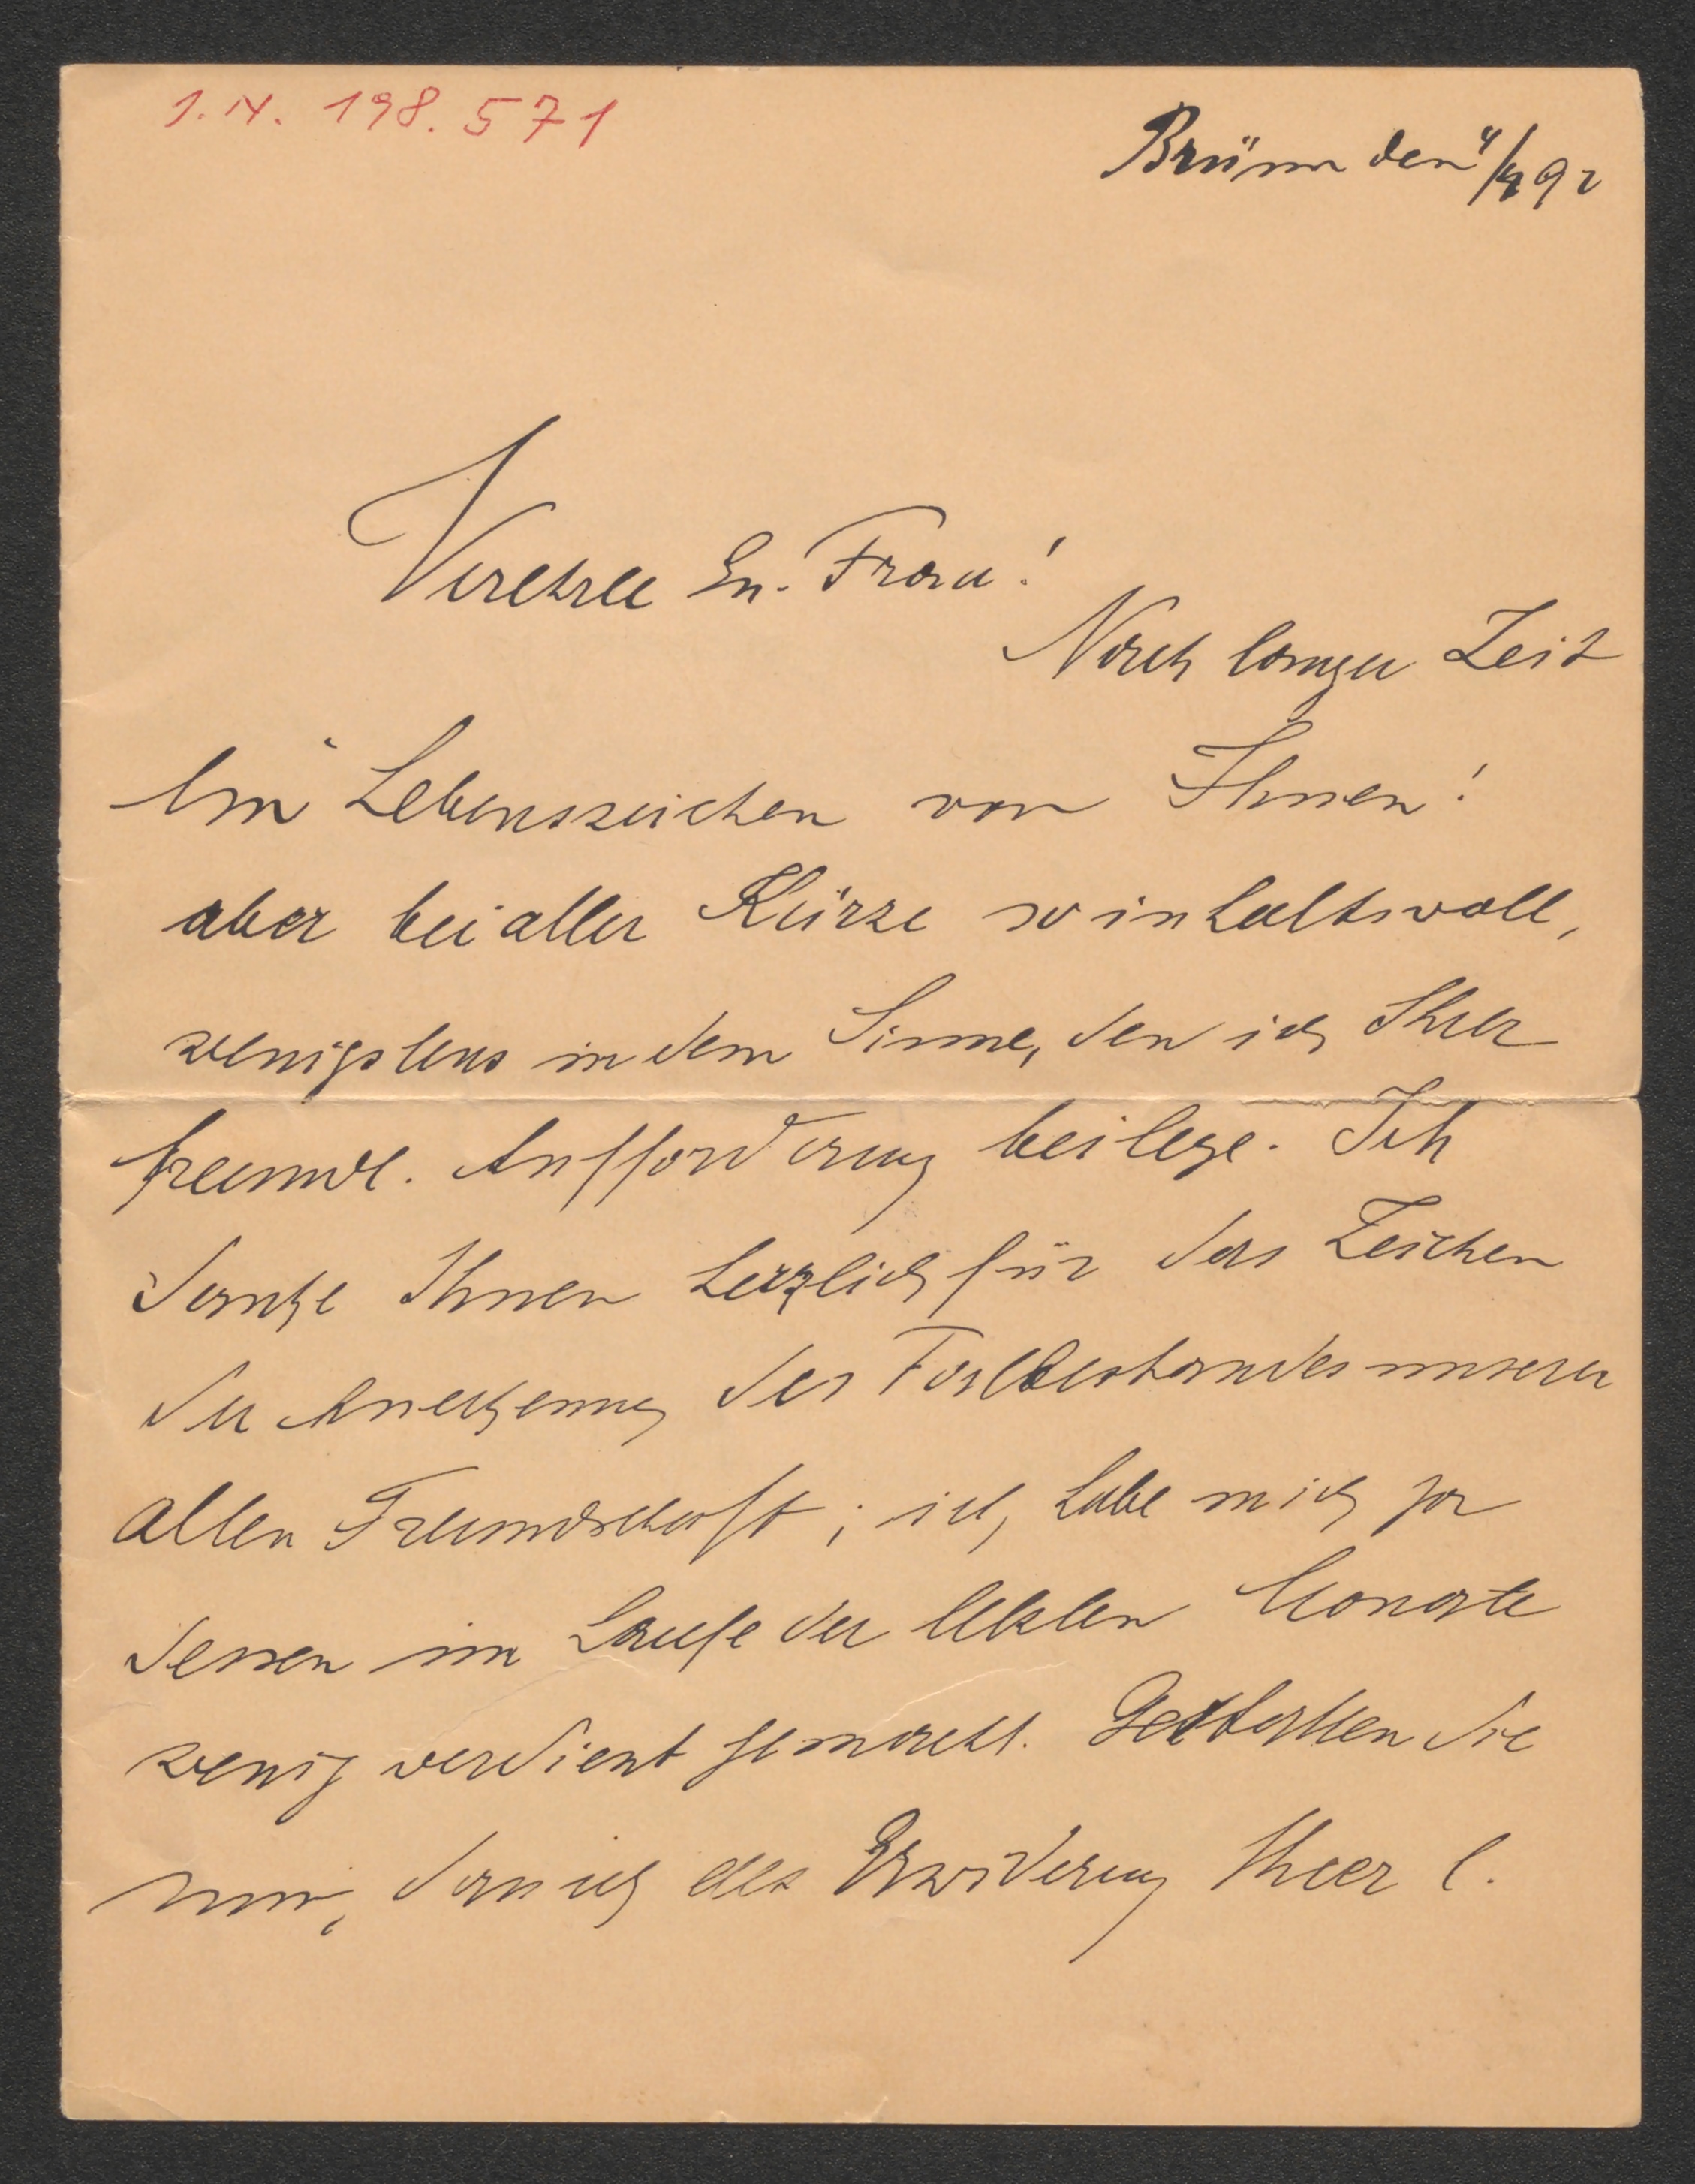 I.N. 198.571
Brünn den 4/4 92
Verehrte Gn. Frau!
Nach langer Zeit
Ein Lebenszeichen von Ihnen!
aber bei aller Kürze so inhaltsvoll,
wenigstens in dem Sinne, den ich Ihrer
freundl. Aufforderung beilege. Ich
danke Ihnen herzlich für das Zeichen
der Anerkennung des Fortbestandes unserer
alten Freundschaft; ich habe mich ja
dessen im Laufe der letzten Monate
wenig verdient gemacht. Gestatten Sie
nun, dass ich als Erwiderung Ihrer l.